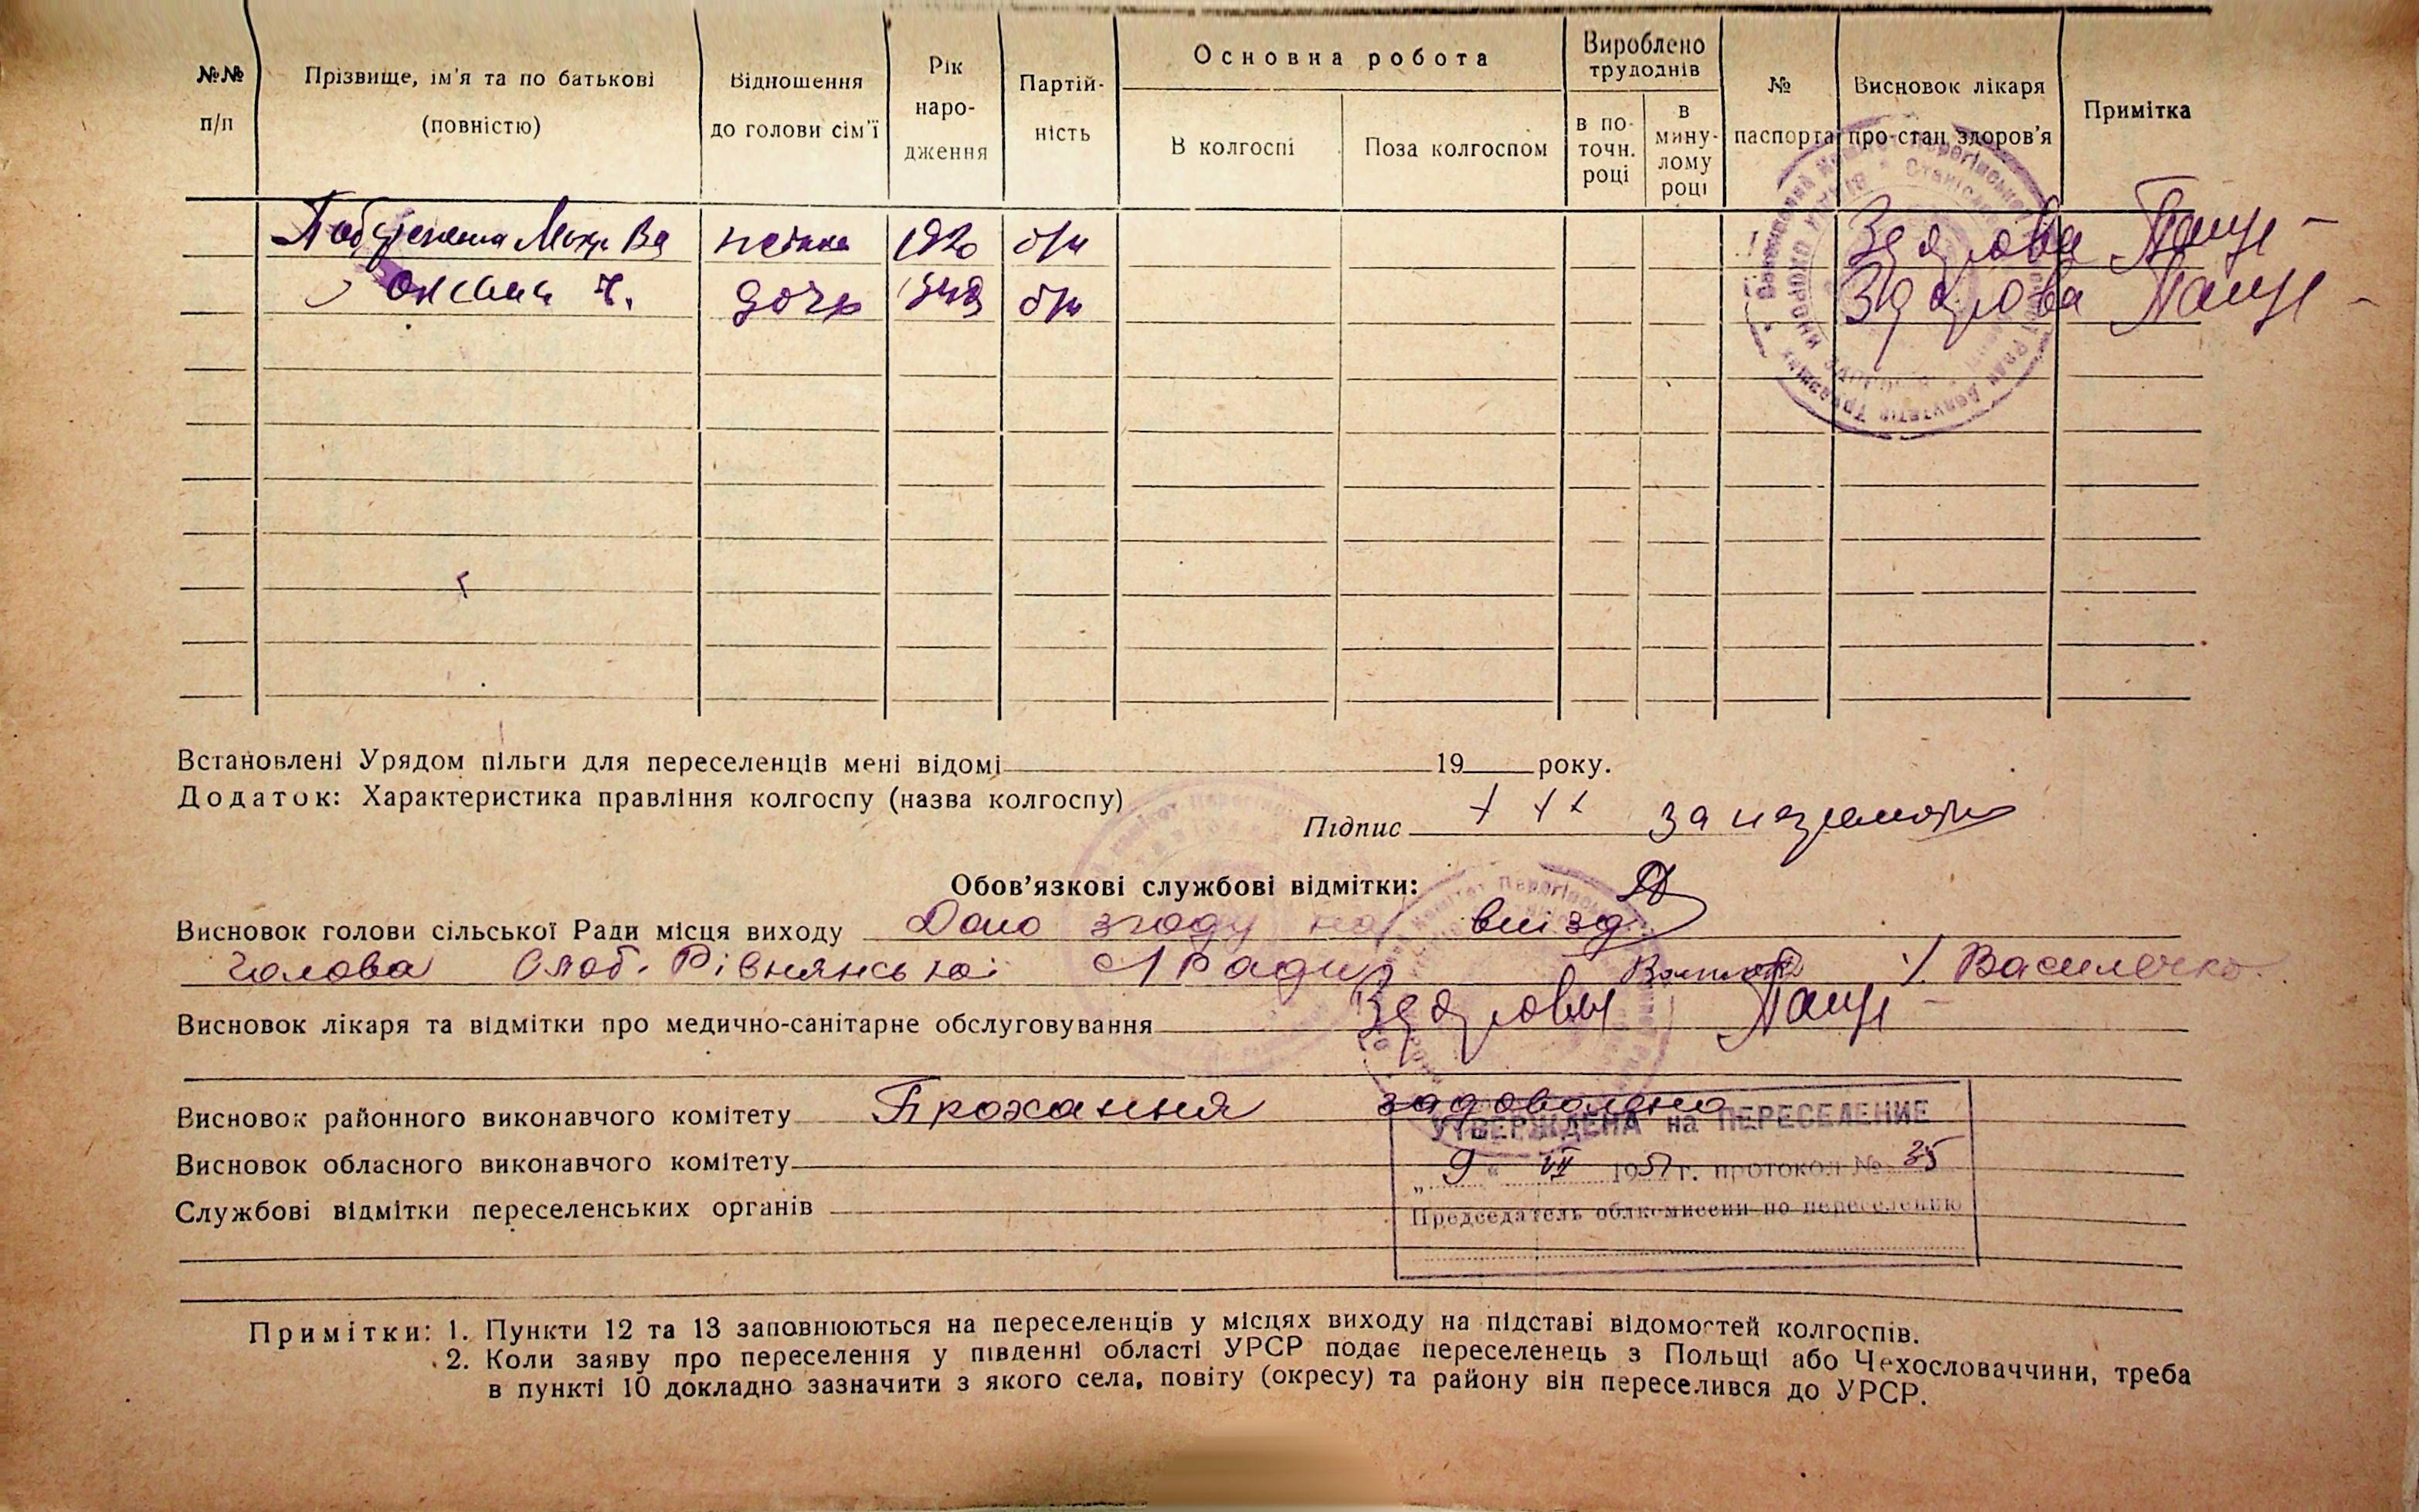 №№ п/п
Прізвище, ім'я та по батькові (повністю)
Відношення до голови сім'ї
Рік наро-дження
Партій-ність
Основна робота
В колгоспі
Поза колгоспом
Вироблено трудоднів
в по-точн. році
в мину-лому році
№ паспорта
Висновок лікаря про стан здоров'я
Примітка
1920 б/п Здорова
дочь б/п Здорова
Встановлені Урядом пільги для переселенців мені відомі 19 року.
Додаток: Характеристика правління колгоспу (назва колгоспу)
Підпис + + + за
Обов'язкові службові відмітки:
Висновок голови сільської Ради місця виходу Даю згоду на виїзд
Голова Слоб. Рівнянської с/Ради / Василечко.
Висновок лікаря та відмітки про медично-санітарне обслуговування
Висновок районного виконавчого комітету Прохання задоволено
УТВЕРЖДЕНА на ПЕРЕСЕЛЕНИЕ
Висновок обласного виконавчого комітету
„ 9 " VII 1951 г. протокол № 35
Службові відмітки переселенських органів
Председатель облкомиссии по переселению
Примітки: 1. Пункти 12 та 13 заповнюються на переселенців у місцях виходу на підставі відомостей колгоспів.
2. Коли заяву про переселення у південні області УРСР подає переселенець з Польщі або Чехословаччини, треба
в пункті 10 докладно зазначити з якого села, повіту (окресу) та району він переселився до УРСР.